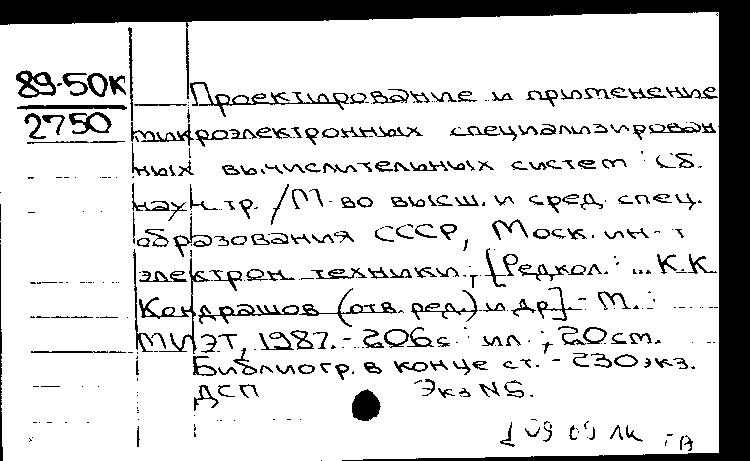 89-50К
2750
Проектирование и применение
микроэлектронных специализирован
ных вычислительных систем : Сб.
науч. тр. / М-во высш. и сред. спец.
образования СССР, Моск. ин-т
электрон. техники ; [Редкол.: ... К.К.
Кондрашов (отв. ред.) и др]. - М. :
МИЭТ, 1987. - 206 с. ил ; 20 см.
Библиогр. в конце ст. - 230 экз.
ДСП Экз N5.